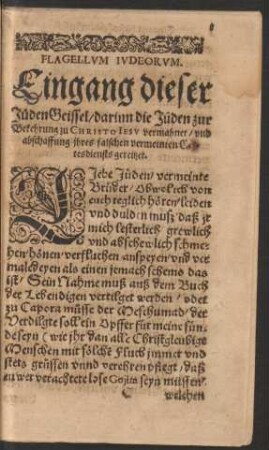 FLAGELLVM IVDEORVM.
Eingang dieser
Jüden Geissel/darum die Jüden zur
Bekehrung zu CHRISTO IESV vermahnet/vnd
abschaffung jhres falschen vermeinten Go-
tesdiensts gereitzet.
LIebe Jüden/vermeinte
Brüder/Obwol ich von
euch teglich hören/leiden
vnd dulden muß/daß jr
mich lesterlich/grewlich
vnd abschewlich schme-
hen/hönen/verfluchen anspeyen vnd ver
maledeyen als einen jemach schemo das
ist/Sein Nahme muß auß dem Buch
der Lebendigen vertilget werden/oder
zu Capora müsse der Meschumad/der
Verdilgte sollein Opffer für meine sün-
de seyn (wie jhr dan alle Christgleubige
Menschen mit solche Fluch jmmer vnd
stets grüssen vnnd verehren pflegt/daß
es wer verachtete lose Gojim seyn müssen/
C welchen